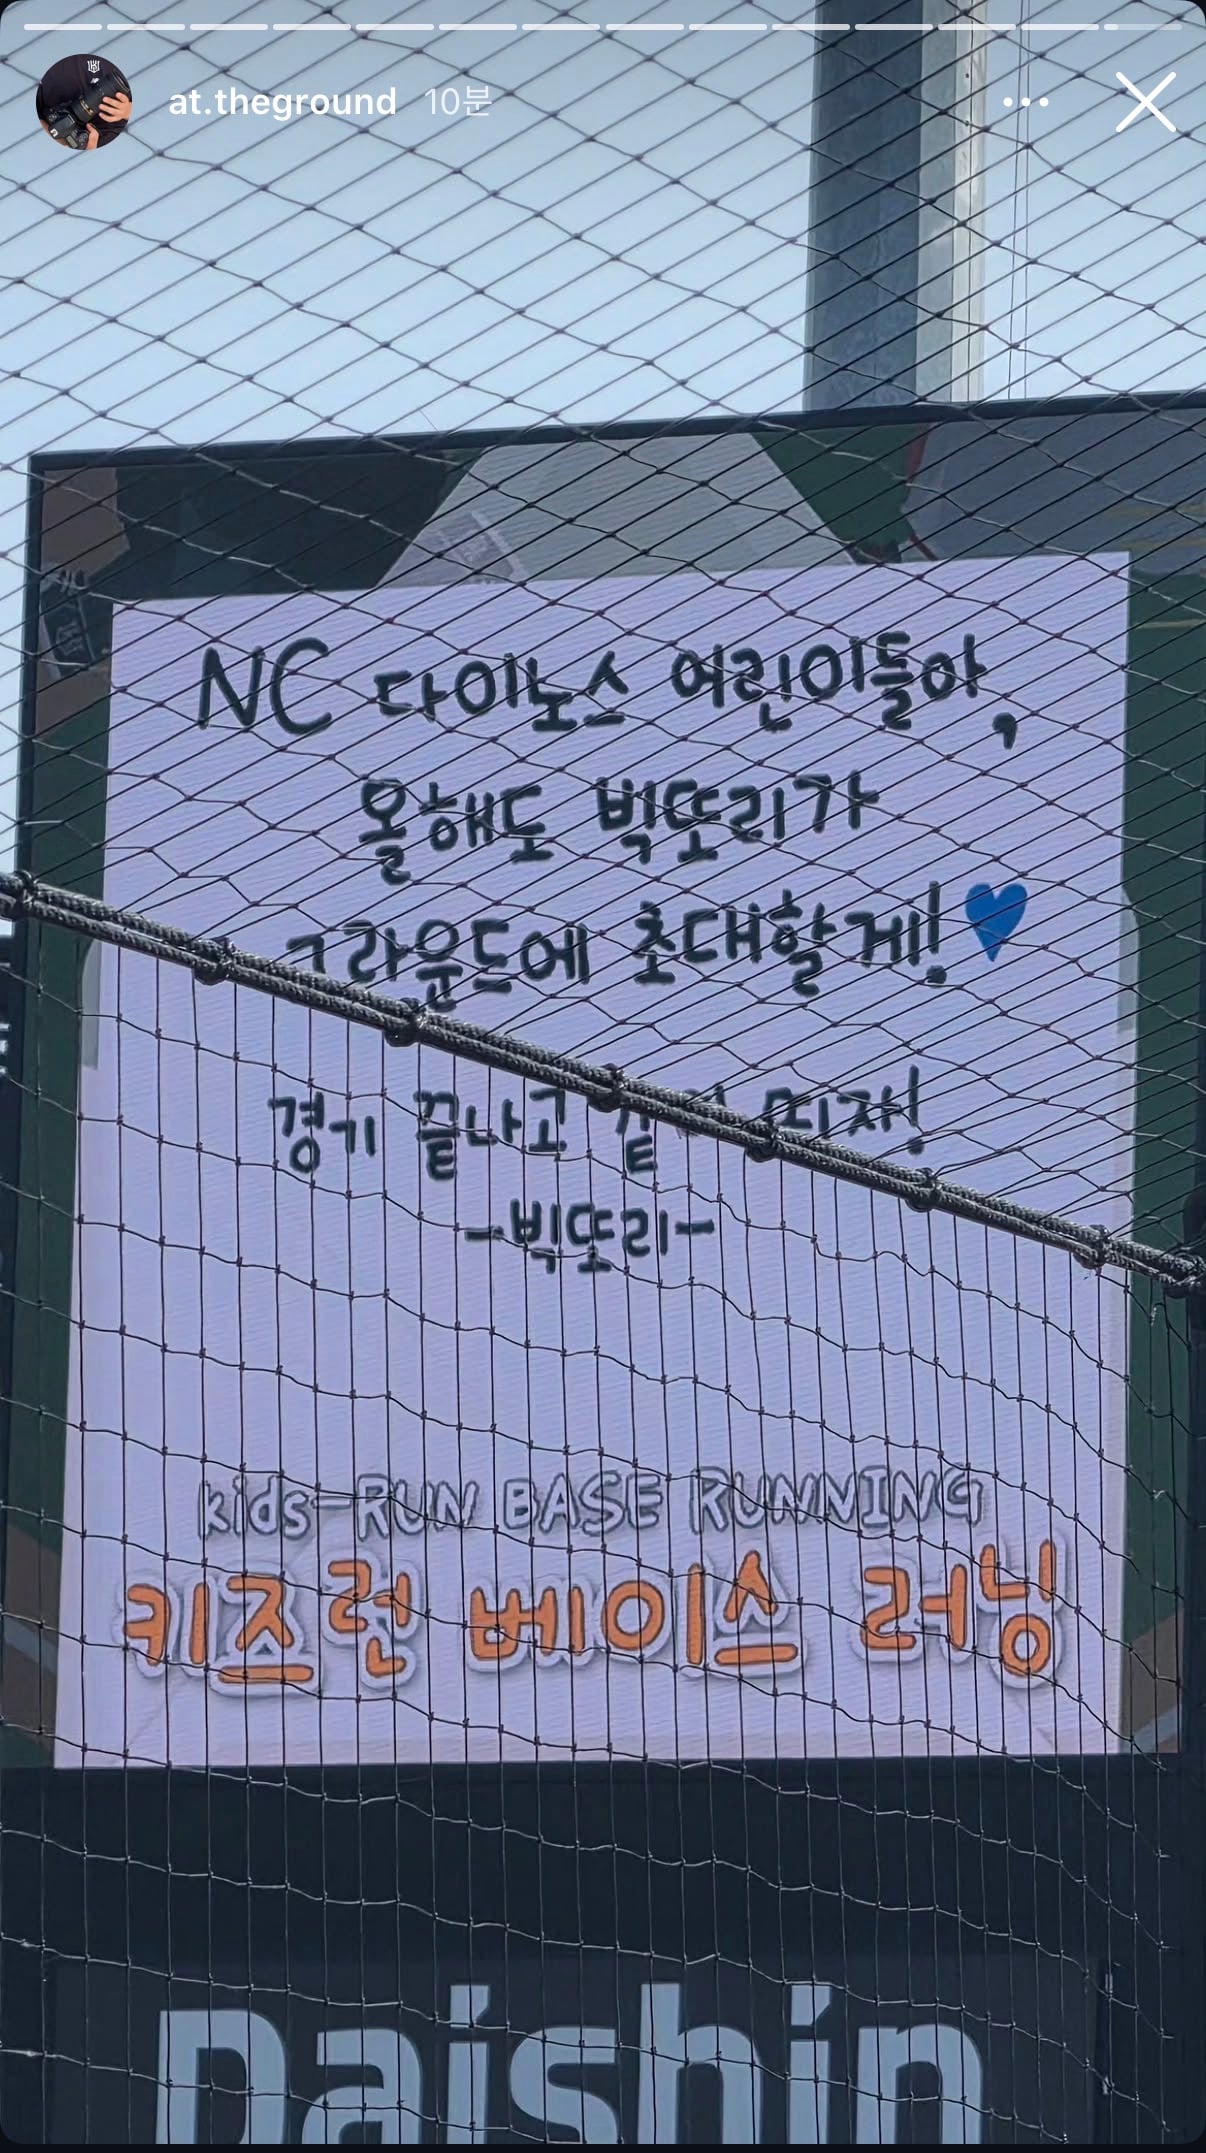 at.theground 10분
NC 다이노스 어린이들아,
올해도 빅또리가
그라운드에 초대할게!
경기 끝나고 같이 뛰자!
-빅또리-
kids-RUN BASE RUNNING
키즈런 베이스 러닝
Daishin